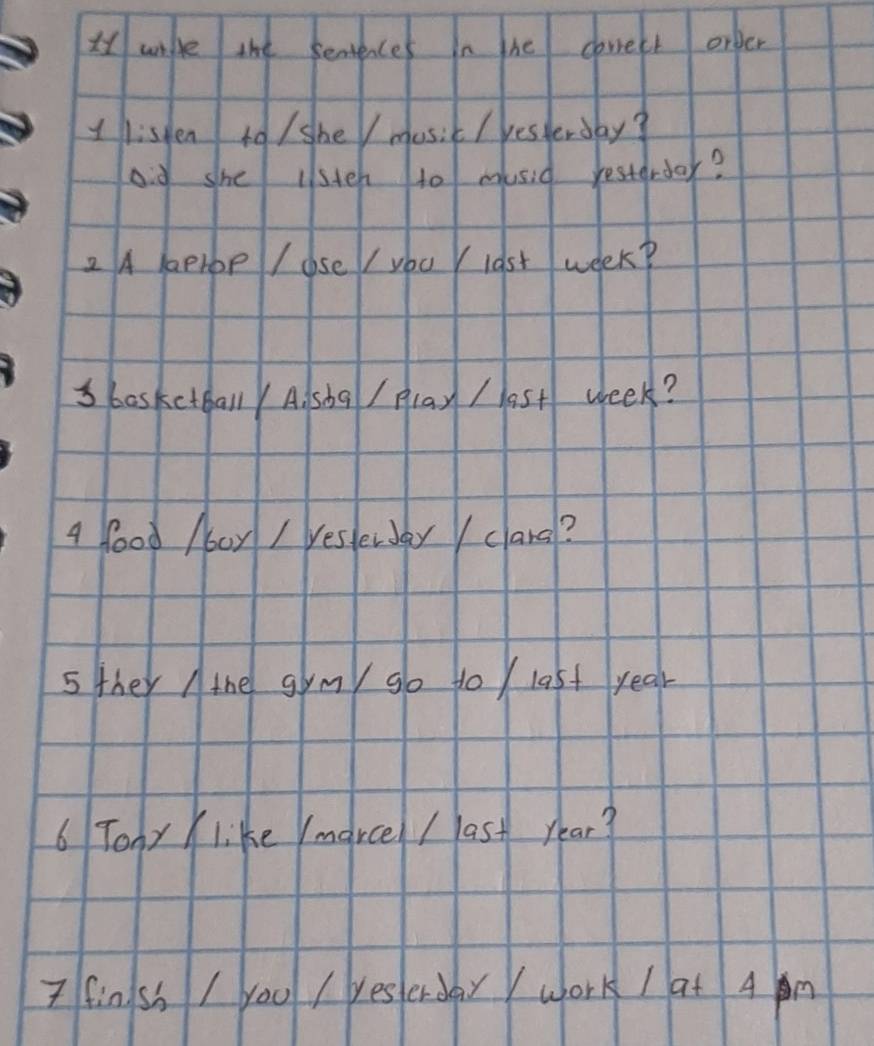 11 write the sentences in the correct order
1 listen to / she / music / yesterday?
Did she listen to music yesterday?
2 A laptop / use / you / last week?
3 basketball / Aisha / Play / last week?
4 food / buy / yesterday / clara?
5 they / the gym / go to / last year
6 Tony / like / marcel / last year?
7 finish / you / yesterday / work / at 4 pm